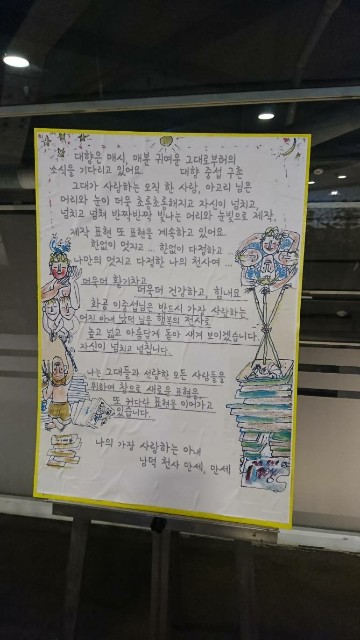 대향은 매시, 매분 귀여운 그대로부터의
소식을 기다리고 있어요. 대향 중섭 구촌
그대가 사랑하는 오직 한 사람, 아고리 님은
머리와 눈이 더욱 초롱초롱해지고 자신이 넘치고,
넘치고 넘쳐 반짝반짝 빛나는 머리와 눈빛으로 제작,
제작 표현 또 표현을 계속하고 있어요.
한없이 멋지고... 한없이 다정하고
나만의 멋지고 다정한 나의 천사여...
더욱더 활기차고
더욱더 건강하고, 힘내요
화공 이중섭님은 반드시 가장 사랑하는
어진 아내 남덕 님을 행복의 천사로
높고 넓고 아름답게 돌아 새겨 보이겠습니다.
자신이 넘치고 넘칩니다.
나는 그대들과 선량한 모든 사람들을
위하여 참으로 새로운 표현을,
또 커다란 표현을 이어가고
있습니다.
나의 가장 사랑하는 아내
남덕 천사 만세, 만세